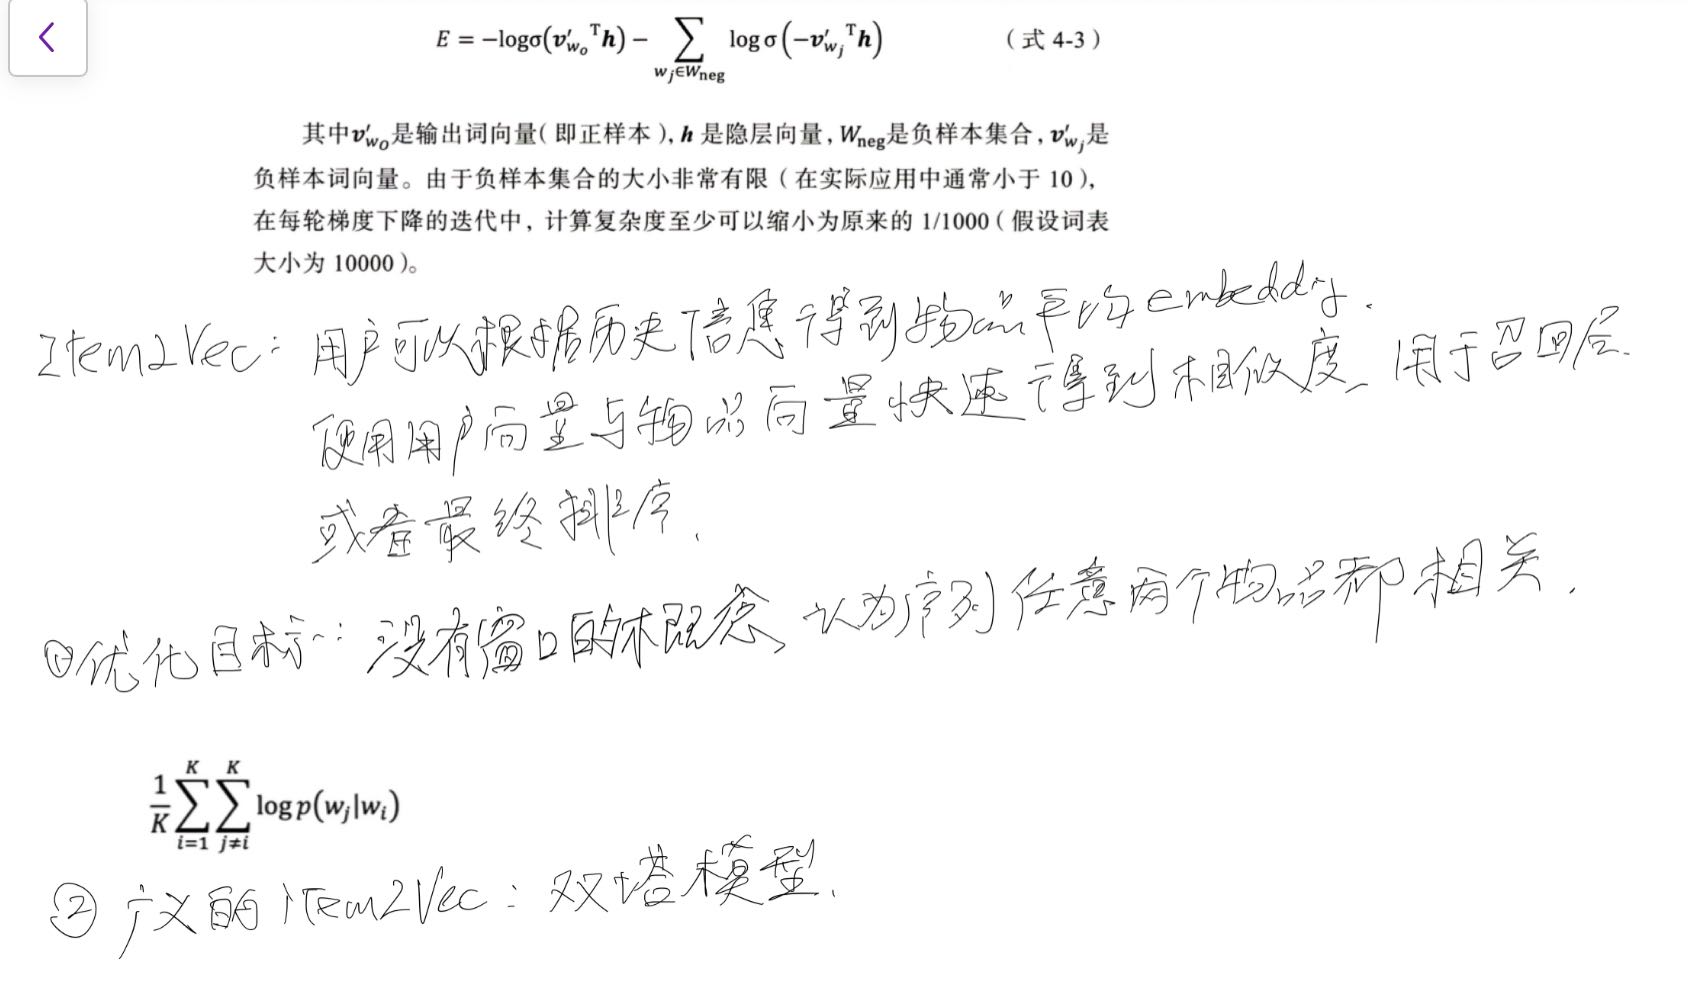 E = −logσ(v′_{w_o}^T h) − ∑_{w_j∈W_neg} log σ(−v′_{w_j}^T h) （式 4-3）
其中v′_{w_O}是输出词向量（即正样本），h 是隐层向量，W_neg是负样本集合，v′_{w_j}是
负样本词向量。由于负样本集合的大小非常有限（在实际应用中通常小于 10），
在每轮梯度下降的迭代中，计算复杂度至少可以缩小为原来的 1/1000（假设词表
大小为 10000）。
Item2Vec：用户可以根据历史信息得到物品平均embedding.
使用用户向量与物品向量快速得到相似度、用于召回层
或者最终排序.
①优化目标：没有窗口的概念、认为序列任意两个物品都相关.
1/K ∑_{i=1}^{K} ∑_{j≠i}^{K} log p(w_j|w_i)
② 广义的item2Vec：双塔模型.